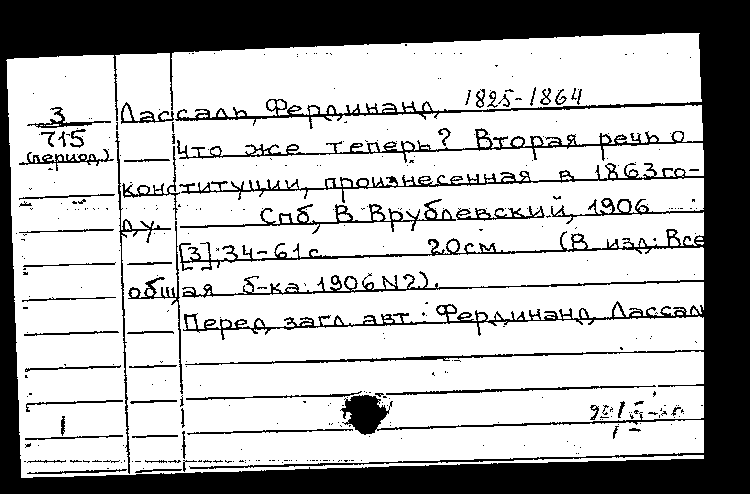 3 Лассаль, Фердинанд, 1825-1864
715
(период.) Что же теперь? Вторая речь о
конституции, произнесенная в 1863 го-
ду. Спб, В. Врублевский, 1906
[3]; 34-61 с. 20 см. (В изд: Все
общая б-ка. 1906 N2).
Перед загл. авт.: Фердинанд Лассаль
1